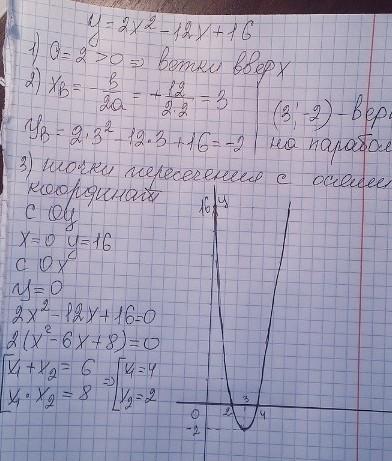 y = 2x² - 12x + 16
1) a = 2 > 0 ⇒ ветки вверх
2) xв = -в/2a = +12/2·2 = 3 (3; -2) - вер
yв = 2·3² - 12·3 + 16 = -2 на парабол
3) точки пересечения с осями
координат
с Oy
x = 0 y = 16
с Ox
y = 0
2x² - 12x + 16 = 0
2(x² - 6x + 8) = 0
[x₁ + x₂ = 6 ⇒ [x₁ = 4
x₁ · x₂ = 8 x₂ = 2
16 y
0 2 3 4
-2